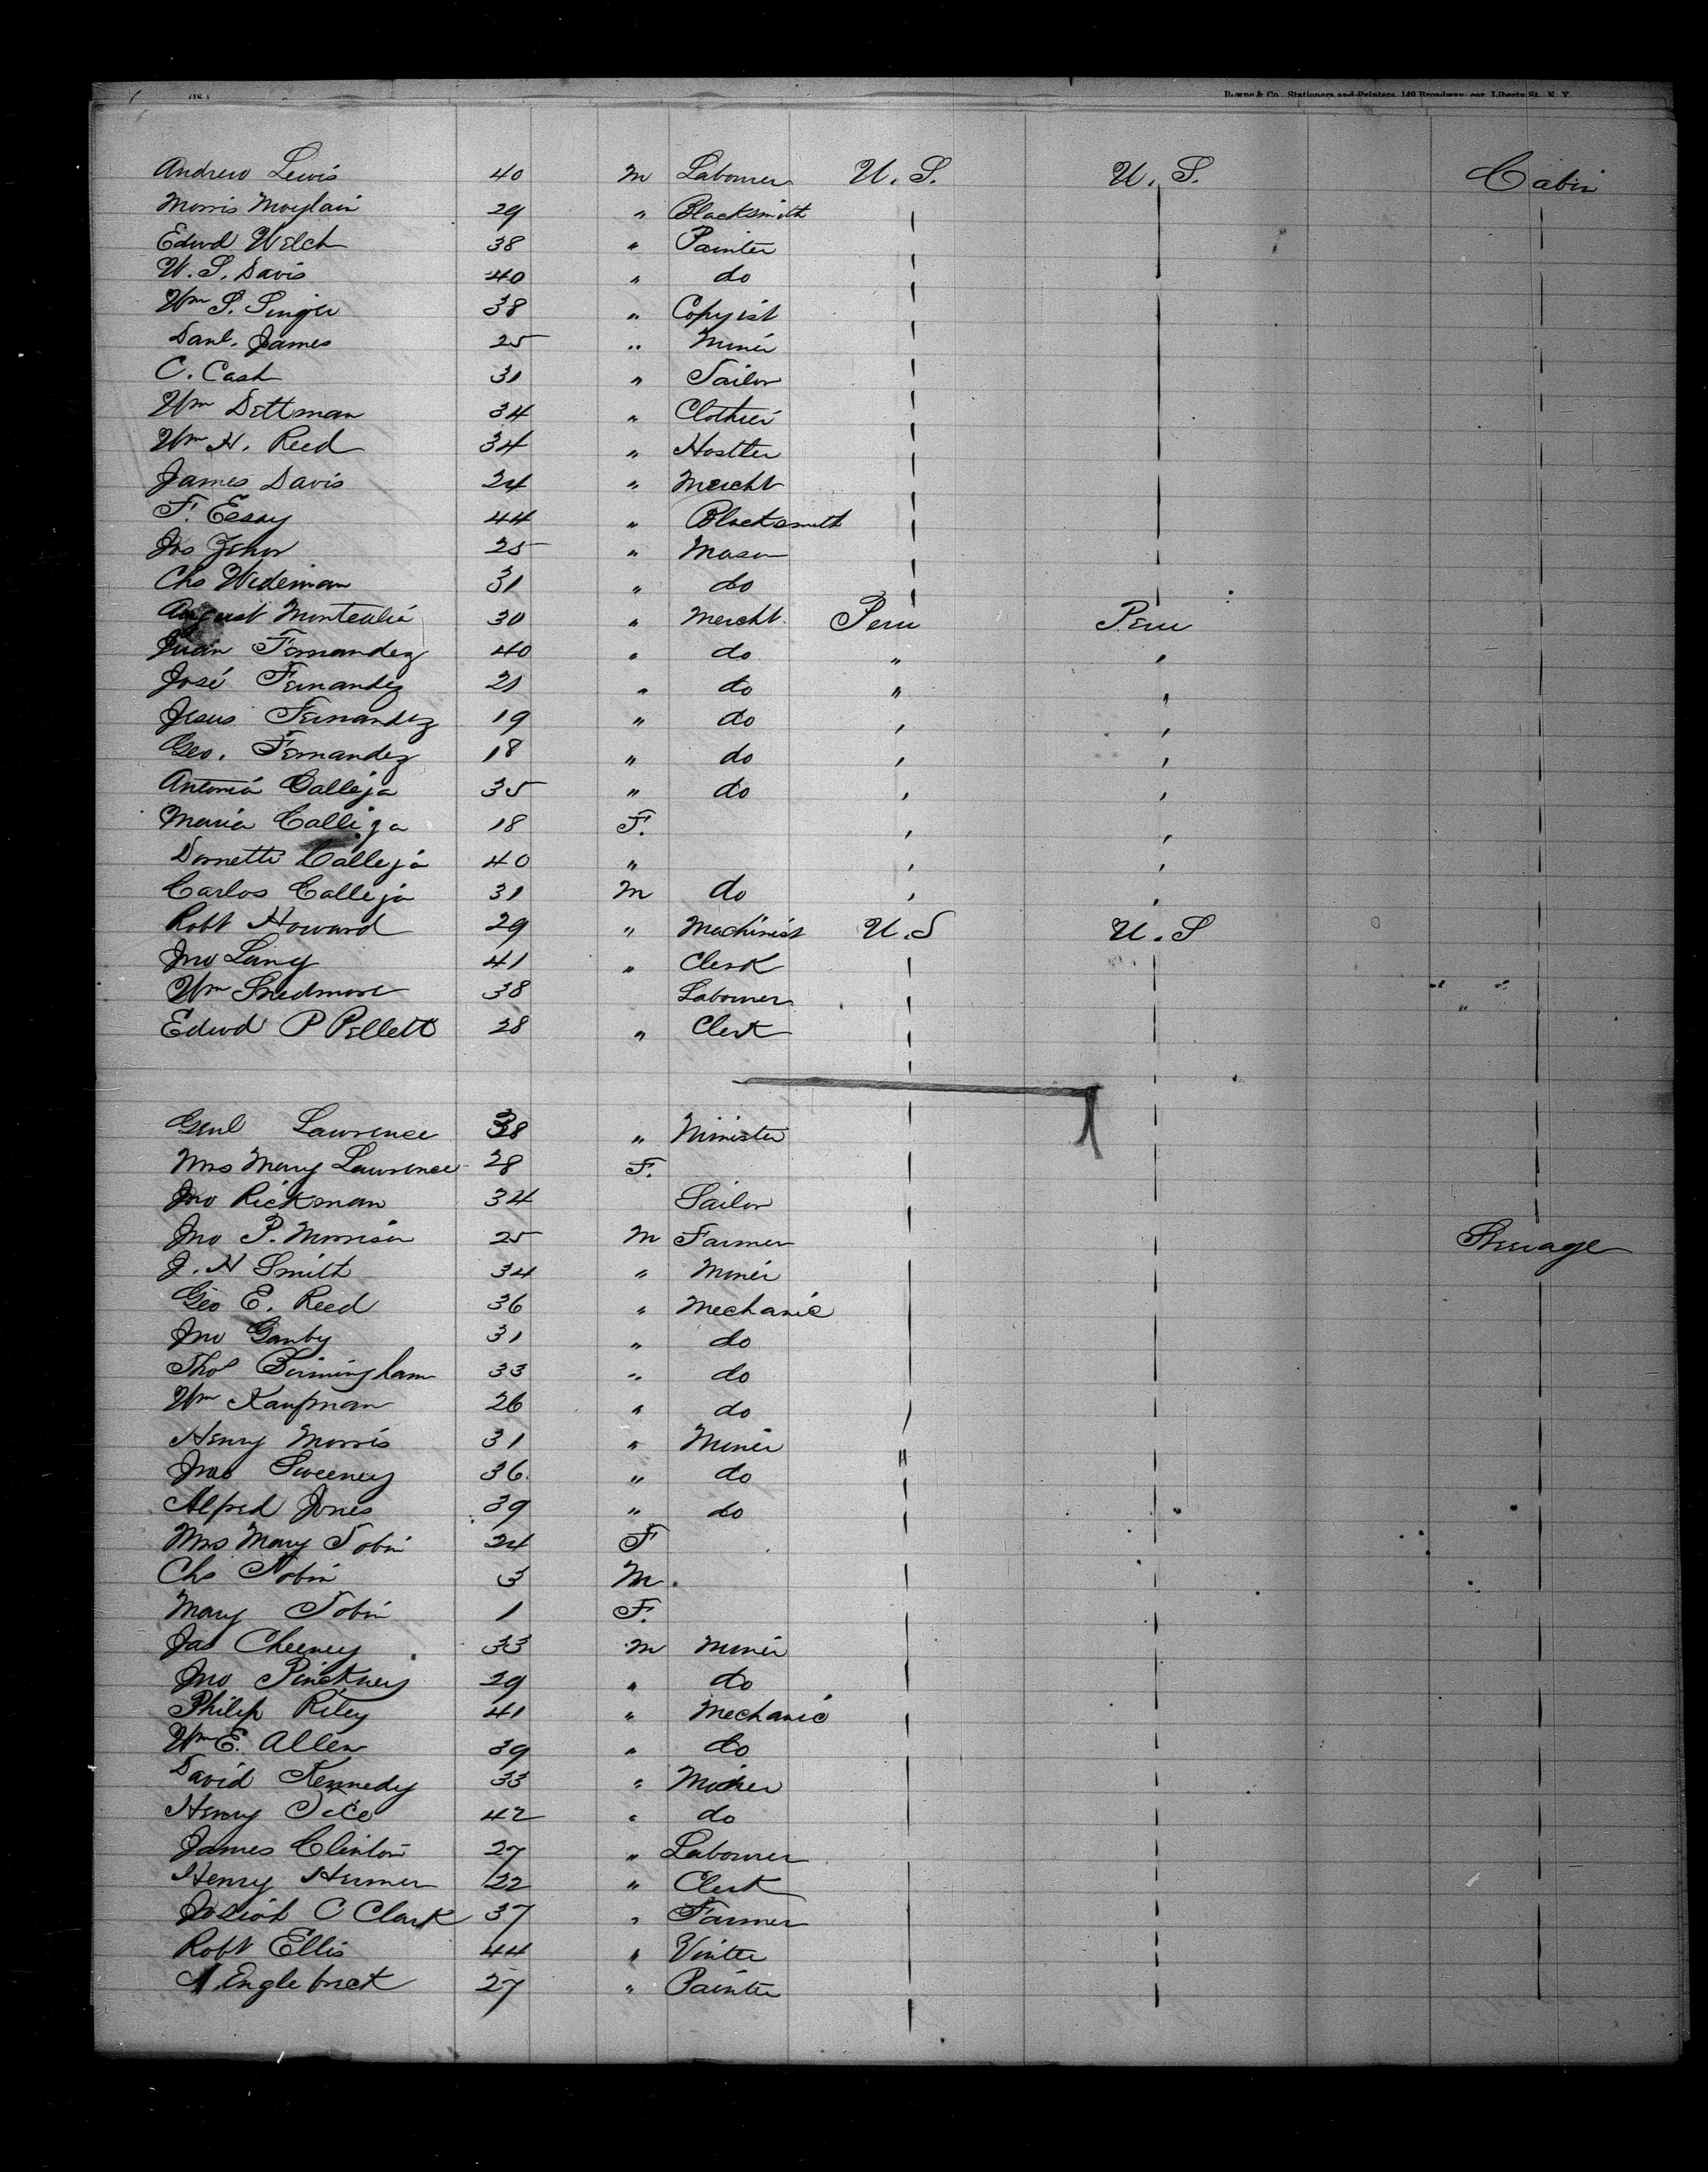 Bowne & Co., Stationers and Printers, 149 Broadway, cor. Liberty St. N. Y.
Andrew Lewis 40 m Labourer U. S. U. S. Cabin
Morris Moylain 29 " Blacksmith
Edwd Welch 38 " Painter
W. S. Davis 40 " do
Wm S. Singer 38 " Copyist
Danl. James 25 " Miner
C. Cash 31 " Tailor
Wm Dettman 34 " Clothier
Wm H. Reed 34 " Hostler
James Davis 24 " Mercht
F. Essay 44 " Blacksmith
Jos 25 " Mason
Chs Wideman 31 " do
August 30 " Mercht. Peru Peru
Juan Fernandez 40 " do " "
José Fernandez 21 " do " "
Jesus Fernandez 19 " do " "
Geo. Fernandez 18 " do " "
Antonia Calleja 35 " do " "
Maria Calleja 18 F. " "
Calleja 40 " " "
Carlos Calleja 31 m do " "
Robt Howard 29 " Machinist U. S U. S
Jno Lang 41 " Clerk
Wm Skedmore 38 Labourer
Edwd P Pellett 28 " Clerk
Genl Lawrence 38 " Minister
Mrs Mary Lawrence 28 F.
Jno Rickman 34 Sailor
Jno P. Morrison 25 m Farmer Steerage
J. H Smith 34 " Miner
Geo E. Reed 36 " Mechanic
Jno Ganby 31 " do
Thos Birmingham 33 " do
Wm Kaufman 26 " do
Henry Morris 31 " Miner "
Jno Sweeney 36 " do
Alfred Jones 39 " do
Mrs Mary Tobin 24 F
Chs Tobin 3 M
Mary Tobin 1 F.
Jas Cheeney 33 m Miner
Jno Pinckney 29 " do
Philip Riley 41 " Mechanic
Wm E. Allen 39 " do
David Kennedy 33 " Miner
Henry Tice 42 " do
James Clinton 27 " Labourer
Henry Hermer 22 " Clerk
Josiah C Clark 37 " Farmer
Robt Ellis 44 " Vinter
A Englebrect 27 " Painter